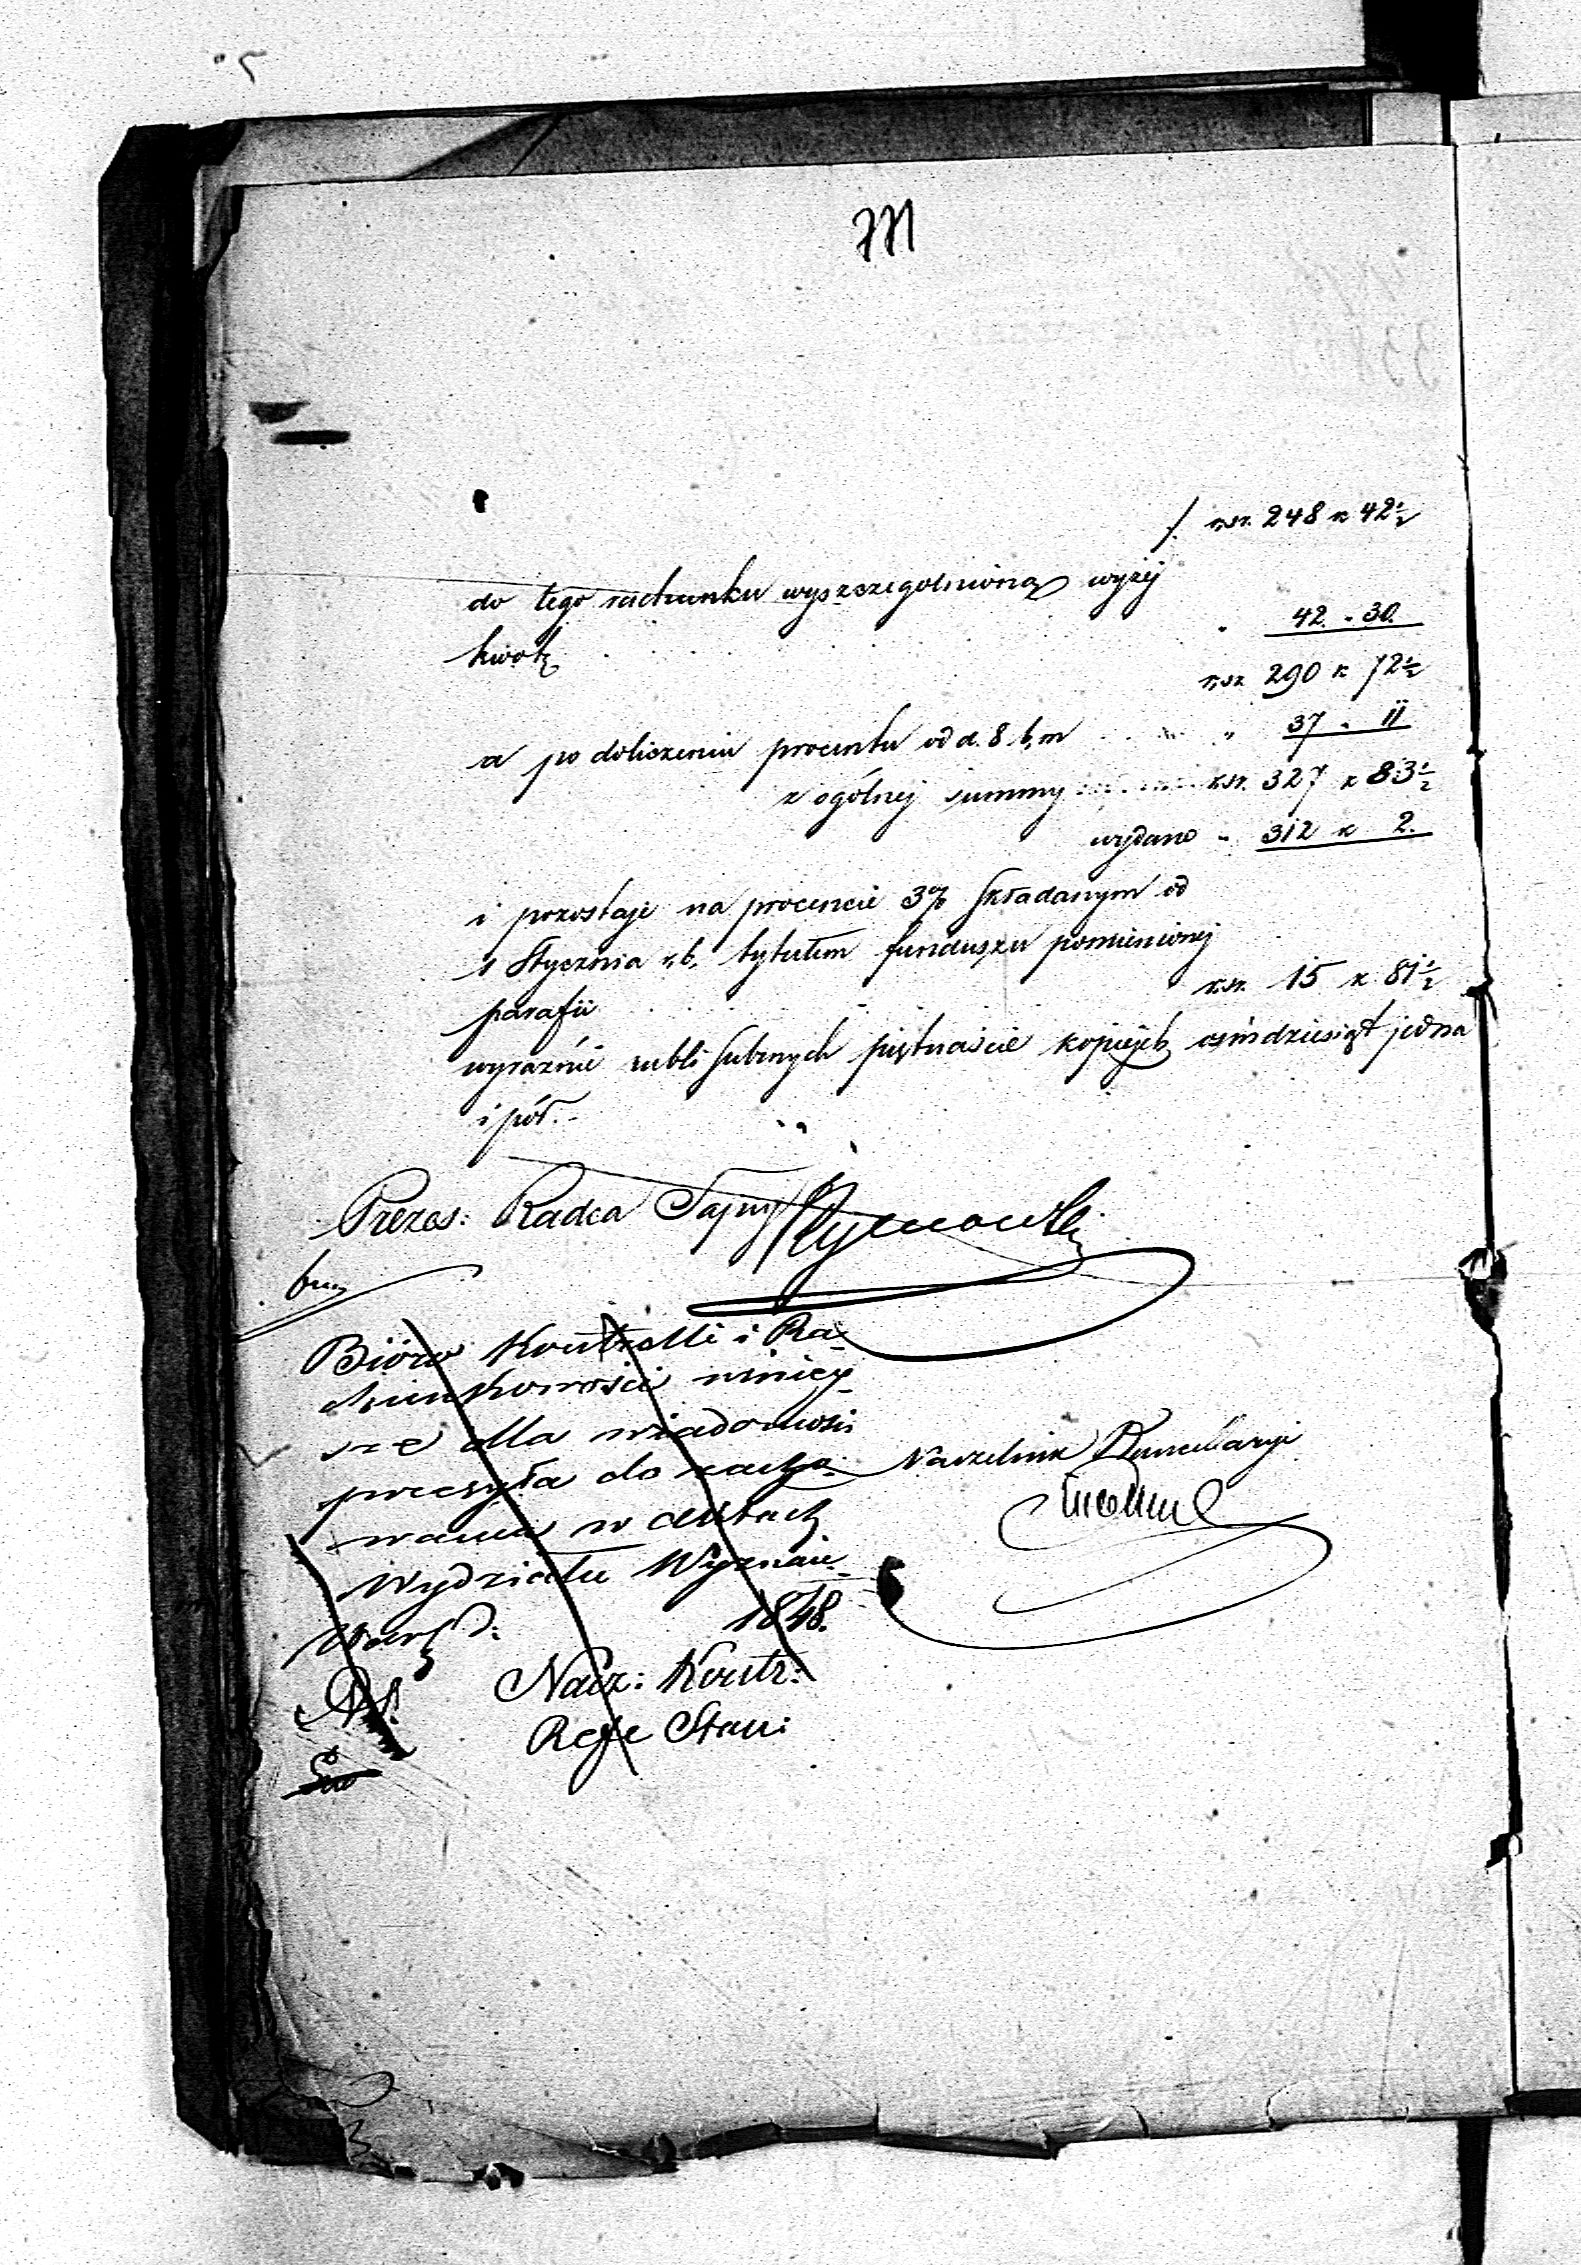 771
/. rsr. 248 k 42½
do tego rachunku wyszczególnioną wyżej
kwotę . . . . . . „ 42. „ 30.
rsr 290 k 72½
a po doliczeniu procentu od d. 8 b.m . . . „ 37 „ 11
z ogólnej summy . . . . rsr. 327 k 83½
wydano „ 312 k 2.
i pozostaje na procencie 3% składanym od
1 Stycznia r.b. tytułem funduszu pomienionej
parafii . . . . . rsr. 15 k 81½
wyraźnie rubli srebrnych piętnaście kopiejek ośmdziesiąt jedna
i pół.-
Prezes: Radca Tajny
Bióro Kontrolli i Ra-
chunkowości niniey-
sze dla wiadomości
przesyła do zacho-
wania w aktach
Wydziału Wyznań.
Warsz d: 1848.
Nacz: Kontr:
Refe Stanu:
Naczelnik Kancellaryi